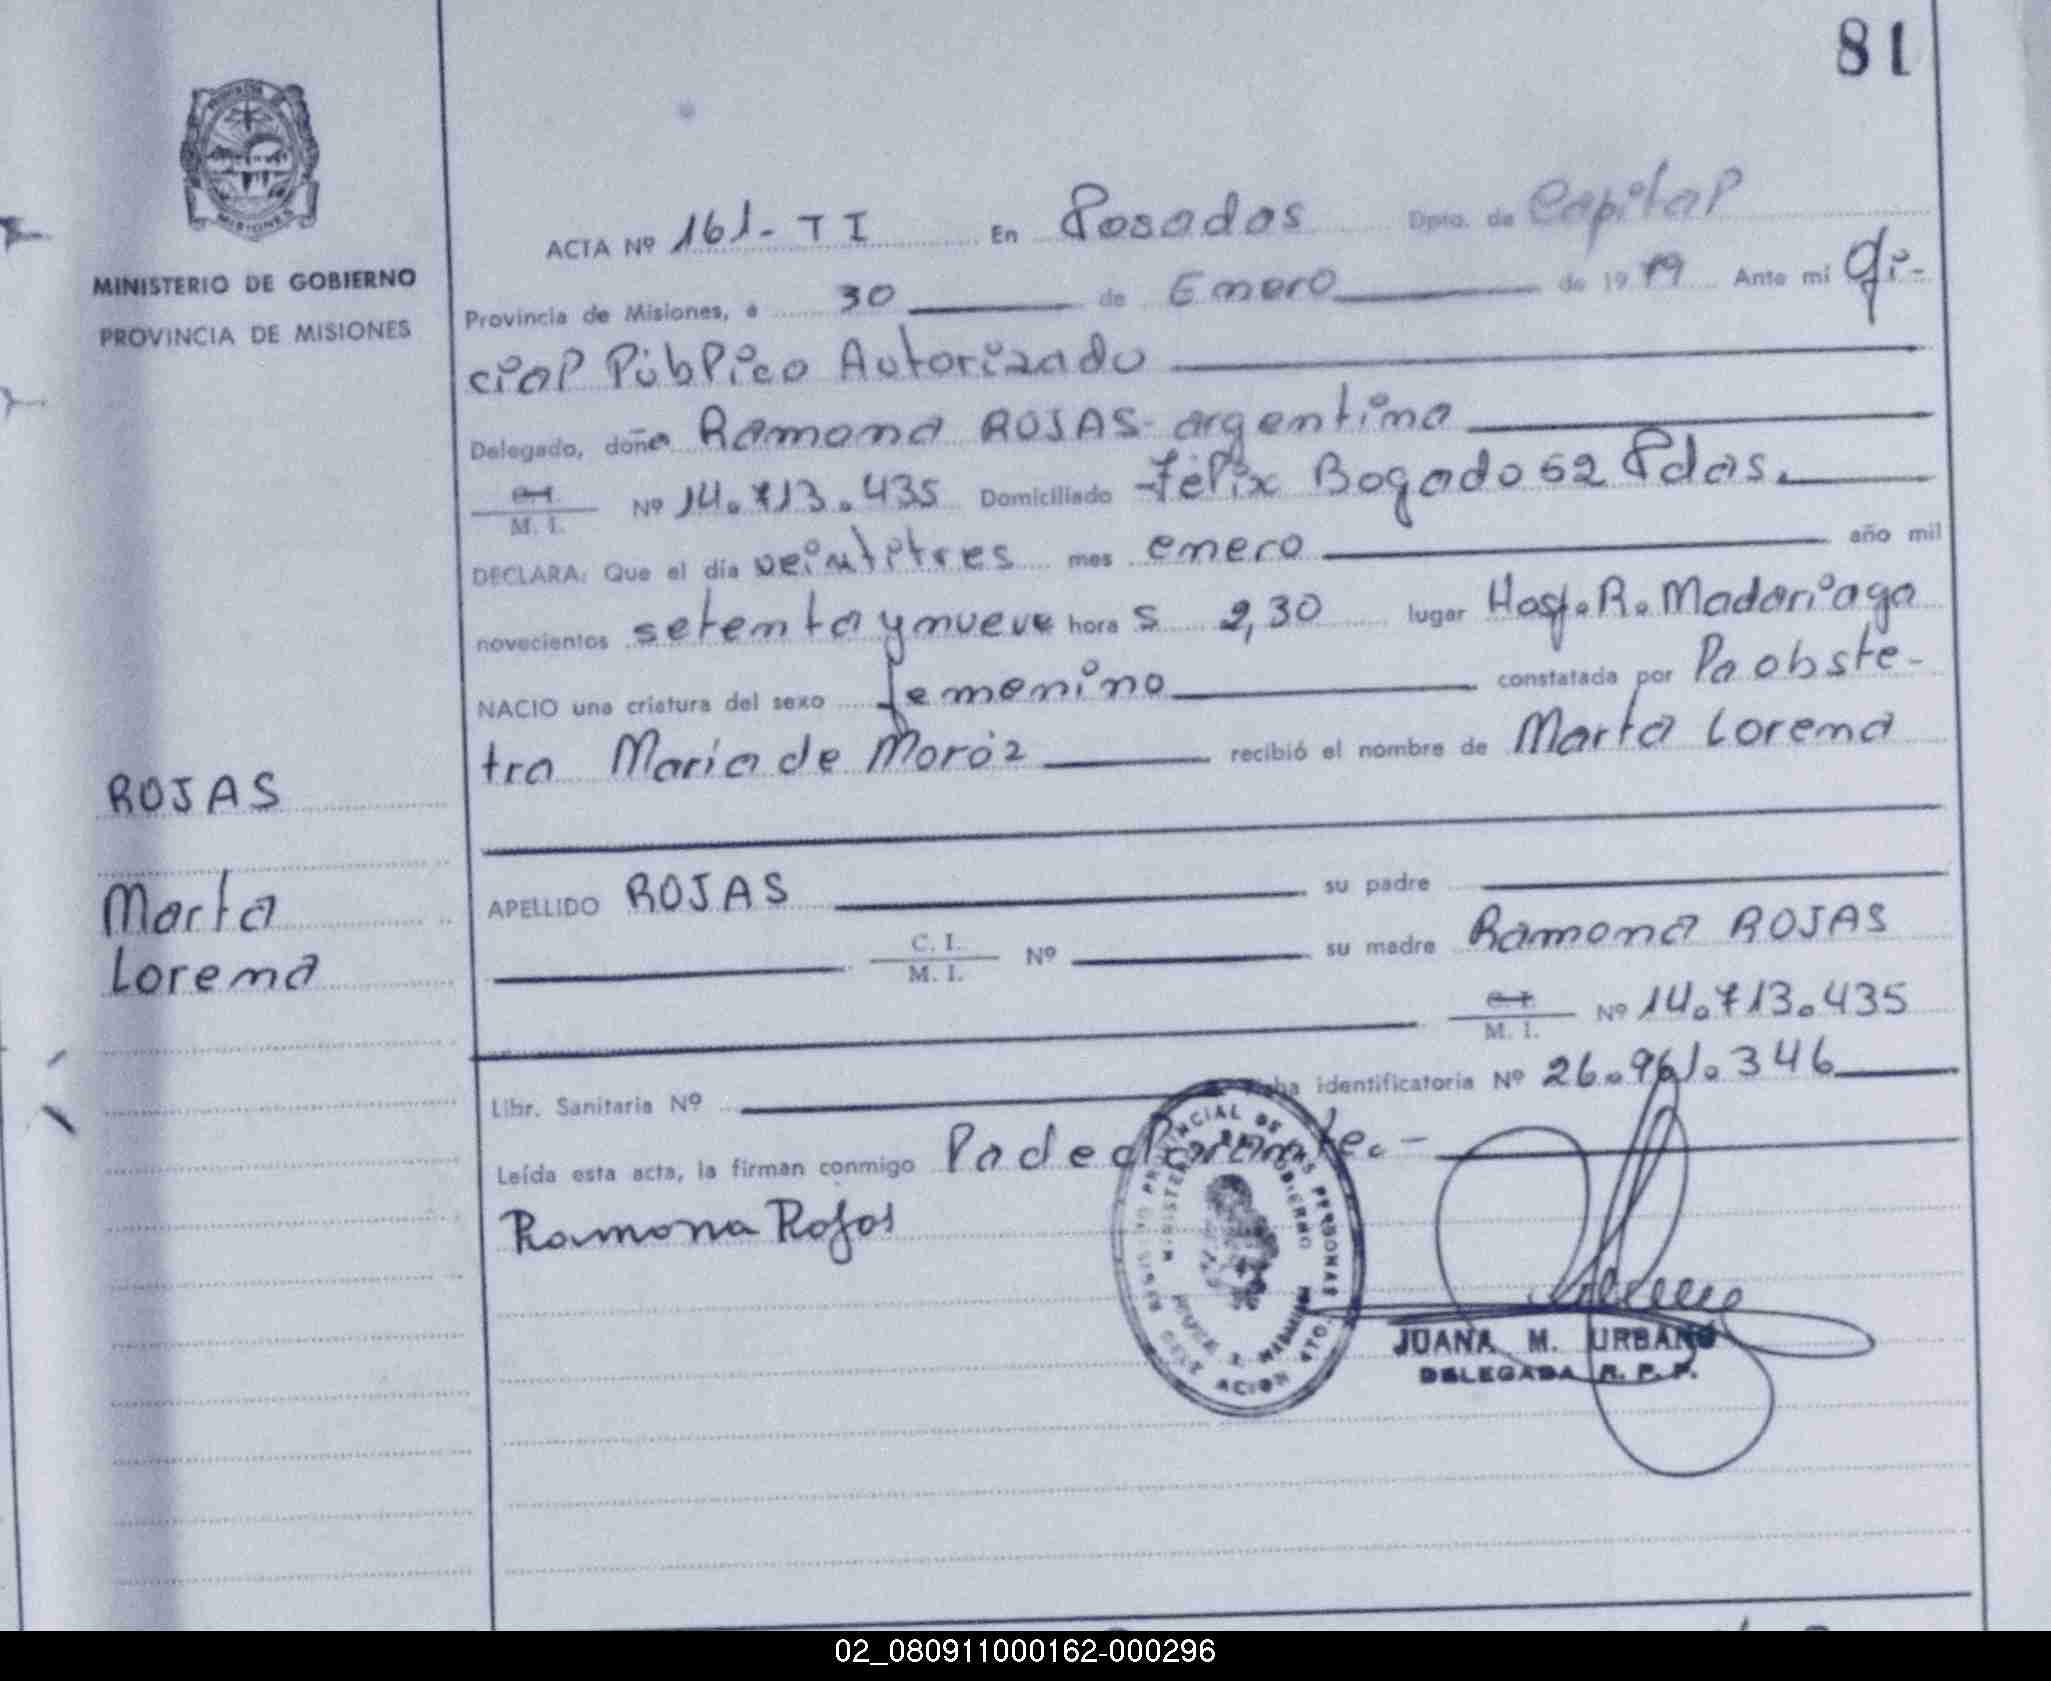 81
MINISTERIO DE GOBIERNO
PROVINCIA DE MISIONES
ROJAS
Marta
Lorena
ACTA Nº 161-TI En Posadas Dpto. de Capital
Provincia de Misiones, a 30 de Enero de 1979 Ante mí Ofi-
cial Público Autorizado
Delegado, doña Ramona ROJAS- argentina
M. I. Nº 14.713.435 Domiciliado Félix Bogado 52 Pdas.
DECLARA: Que el día veintitres mes enero año mil
novecientos setenta y nueve hora s 2,30 lugar Hosp. R. Madariaga
NACIO una criatura del sexo femenino constatada por la obste-
tra María de Moróz recibió el nombre de Marta Lorena
APELLIDO ROJAS su padre
C. I. M. I. Nº su madre Ramona ROJAS
M. I. Nº 14.713.435
Libr. Sanitaria Nº identificatoria Nº 26.961.346
Leída esta acta, la firman conmigo la declarante.-
Ramona Rojas
JUANA M. URBANO
DELEGADA R. P. P.
02_080911000162-000296